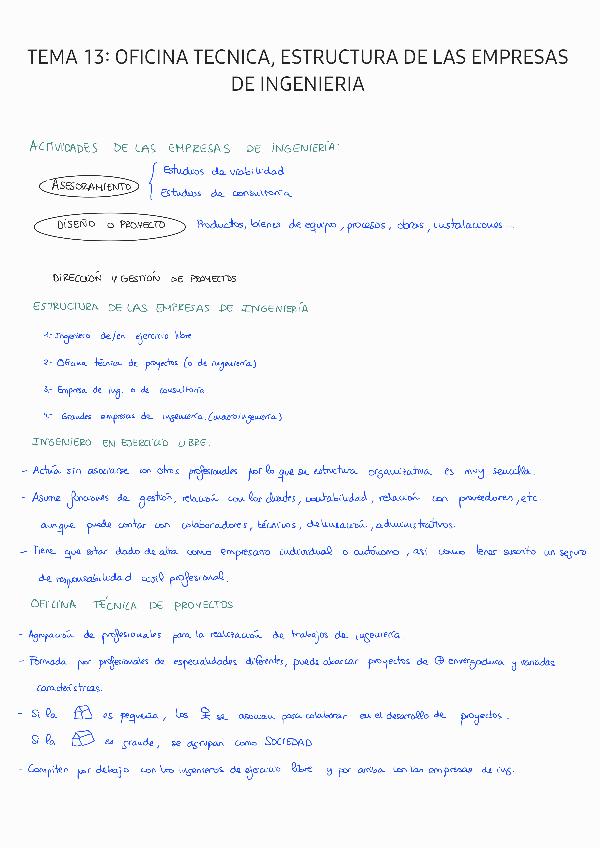 TEMA 13: OFICINA TECNICA, ESTRUCTURA DE LAS EMPRESAS
DE INGENIERIA
ACTIVIDADES DE LAS EMPRESAS DE INGENIERÍA:
ASESORAMIENTO
Estudios de viabilidad
Estudios de consultoría
DISEÑO O PROYECTO Productos, bienes de equipo, procesos, obras, instalaciones...
DIRECCIÓN Y GESTIÓN DE PROYECTOS
ESTRUCTURA DE LAS EMPRESAS DE INGENIERÍA
1.- Ingeniero de/en ejercicio libre
2.- Oficina técnica de proyectos (o de ingeniería)
3.- Empresa de ing. o de consultoría
4.- Grandes empresas de ingeniería (macroingeniería)
INGENIERO EN EJERCICIO LIBRE:
- Actúa sin asociarse con otros profesionales por lo que su estructura organizativa es muy sencilla.
- Asume funciones de gestión, relación con los clientes, contabilidad, relación con proveedores, etc
aunque puede contar con colaboradores, técnicos, delineación, administrativos.
- Tiene que estar dado de alta como empresario individual o autónomo, así como tener suscrito un seguro
de responsabilidad civil profesional.
OFICINA TÉCNICA DE PROYECTOS
- Agrupación de profesionales para la realización de trabajos de ingeniería
- Formada por profesionales de especialidades diferentes, puede abarcar proyectos de ⊕ envergadura y variadas
características.
- Si la es pequeña, los se asocian para colaborar en el desarrollo de proyectos.
Si la es grande, se agrupan como SOCIEDAD
- Compiten por debajo con los ingenieros de ejercicio libre y por arriba con las empresas de ing.